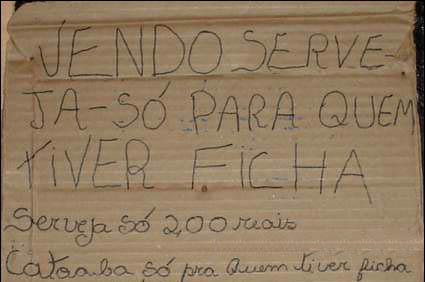 VENDO SERVE-
JA-SÓ PARA QUEM
TIVER FICHA
Serveja só 2,00 reais
Cataaba só pra Quem tiver ficha